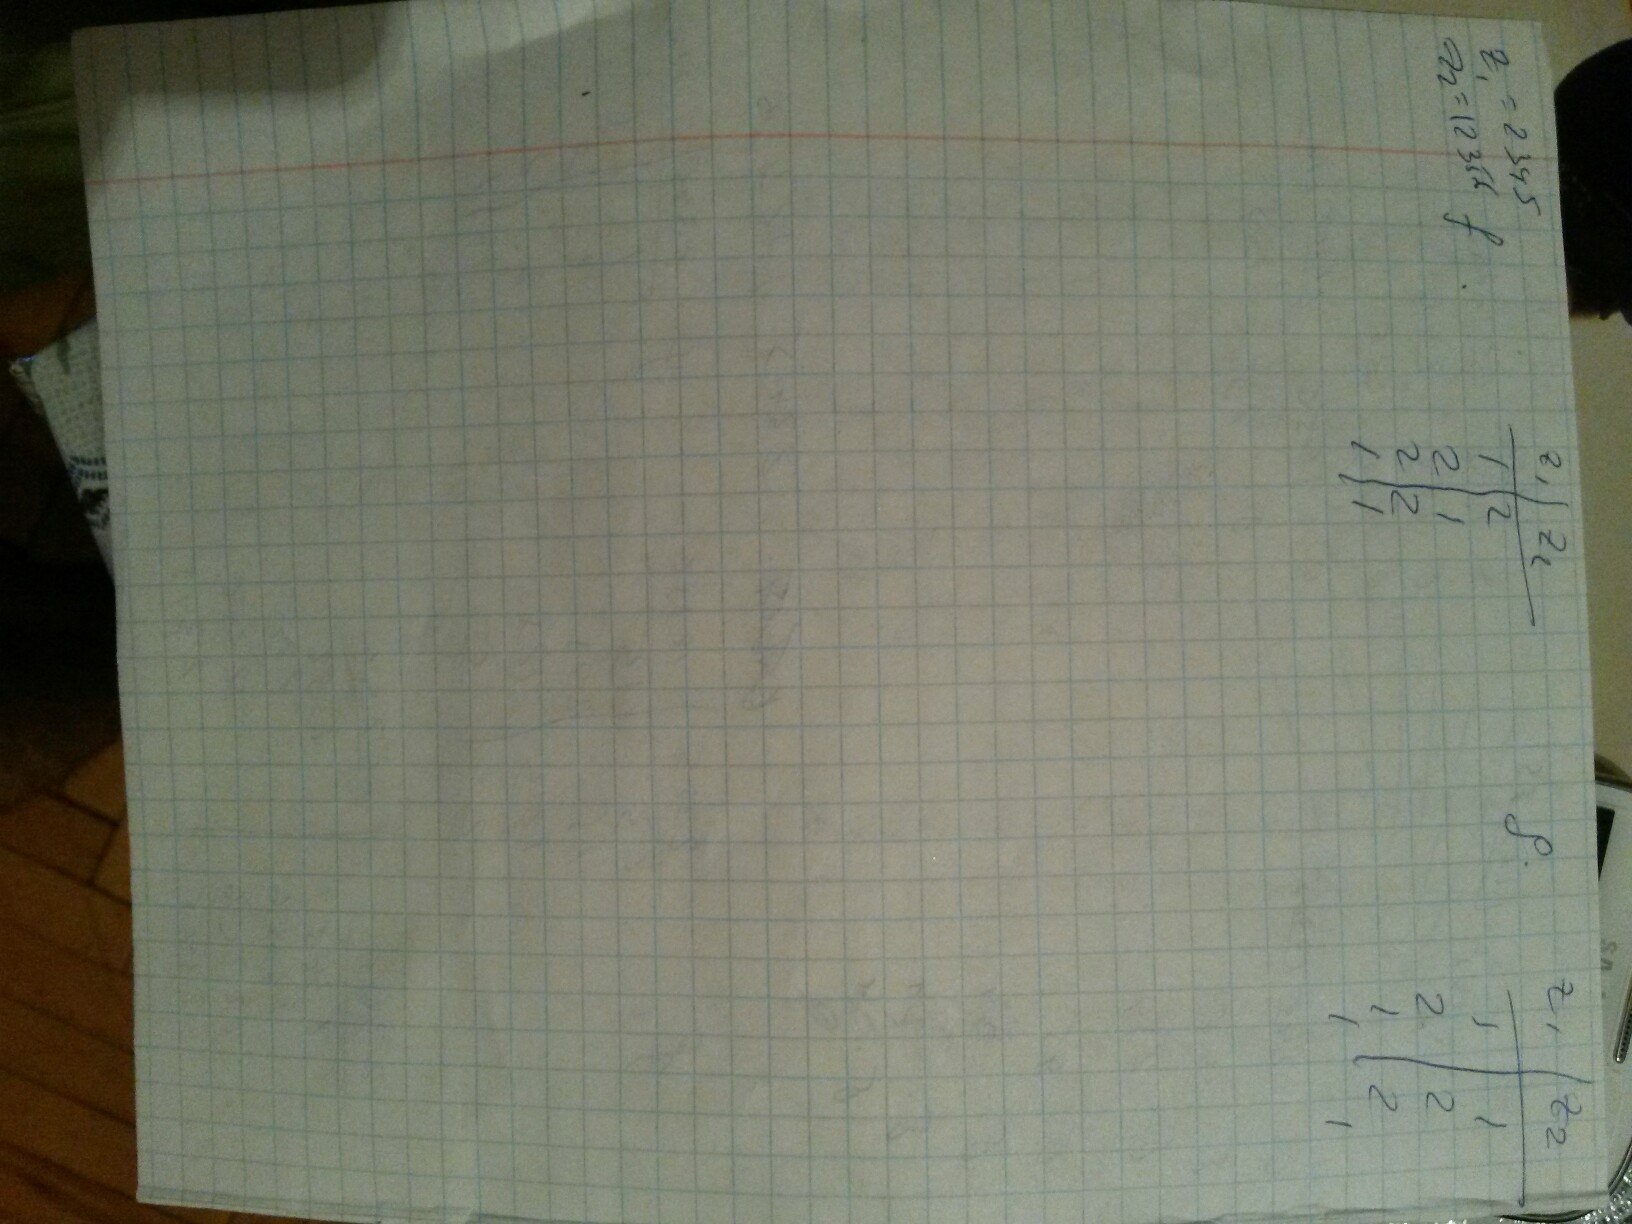 z₁ = 2345
z₂ = 123
f
z₁ | z₂
1 | 2
2 | 1
2 | 2
1 | 1
z₁ | z₂
1 | 1
2 | 2
1 | 2
1 | 1